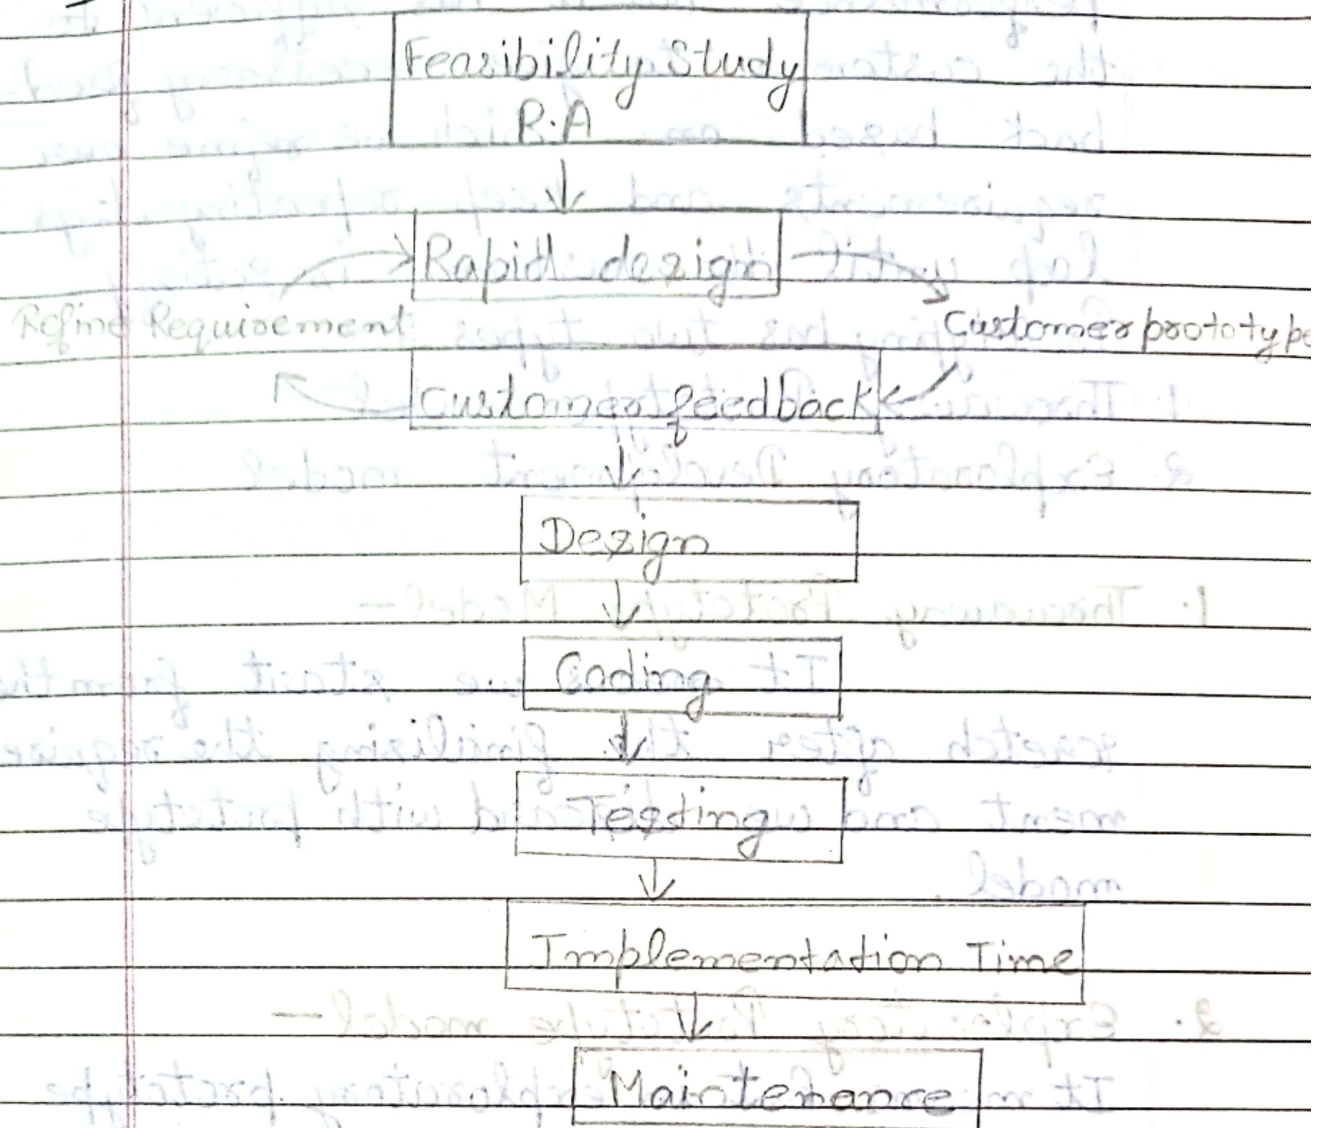 Feasibility Study
R.A
Rapid design
Refine Requirement
Customer prototype
Customer feedback
Design
Coding
Testing
Implementation Time
Maintenance